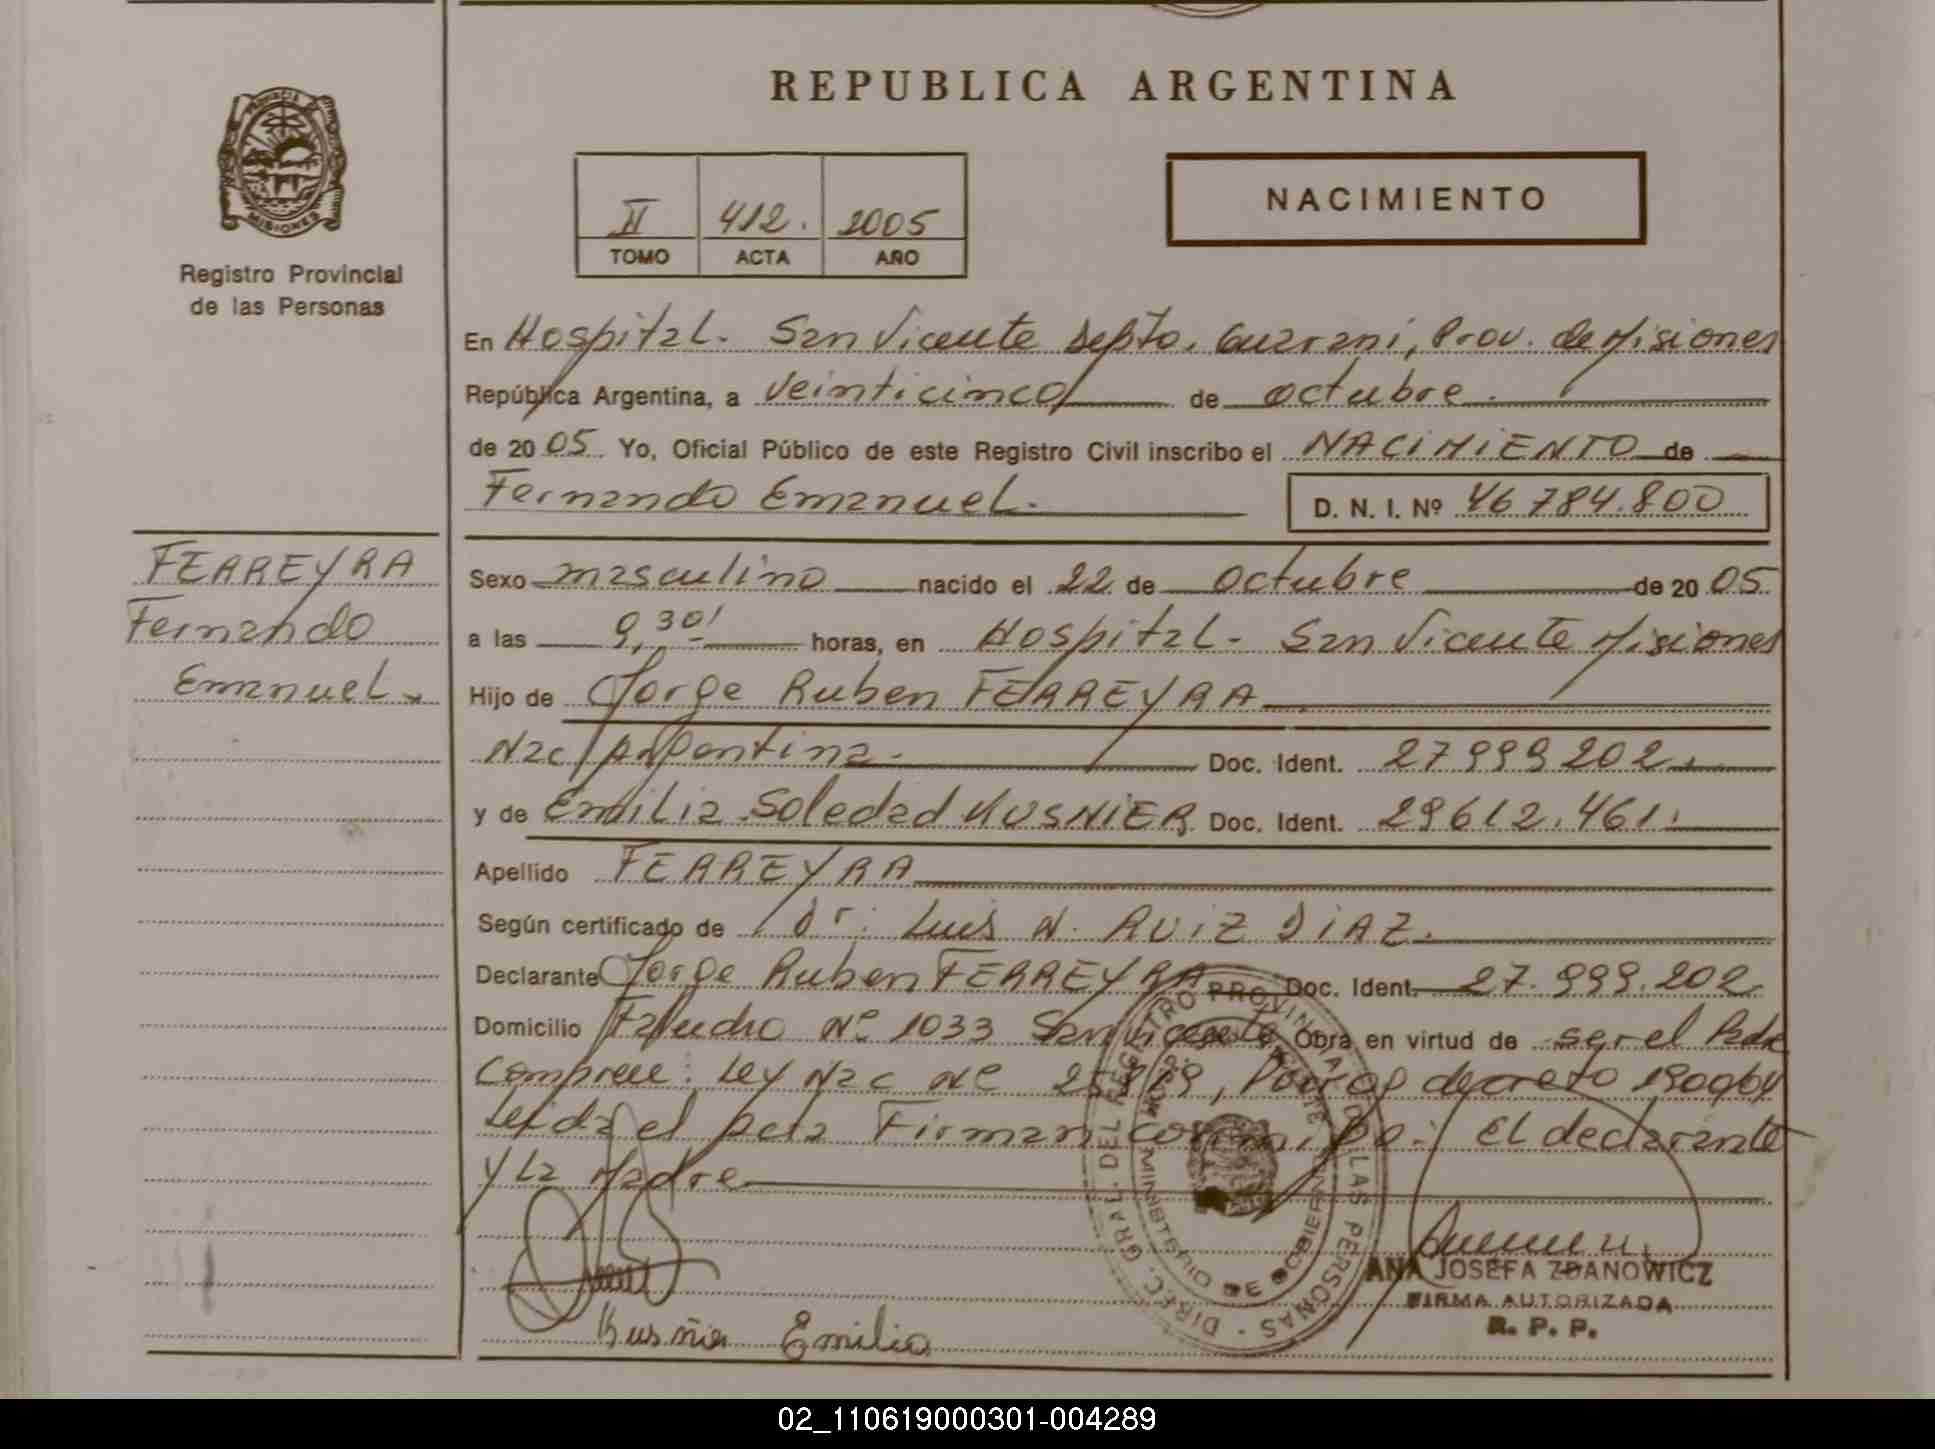 REPUBLICA ARGENTINA
PROVINCIA DE
MISIONES
Registro Provincial
de las Personas
II 412. 2005
TOMO ACTA AÑO
NACIMIENTO
En Hospital. San Vicente Depto. Guarani, Prov. de Misiones
República Argentina, a veinticinco de octubre.
de 20 05. Yo, Oficial Público de este Registro Civil inscribo el NACIMIENTO de
Fernando Emanuel.
D. N. I. Nº 46 784.800
FERREYRA
Fernando
Emanuel
Sexo masculino nacido el 22 de octubre de 20 05.
a las 9,30' horas, en Hospital - San Vicente Misiones
Hijo de Jorge Ruben FERREYRA
Nac/Argentina- Doc. Ident. 27999202.
y de Emilia Soledad Doc. Ident. 29612.461.
Apellido FERREYRA
Según certificado de Dr: Luis N. RUIZ DIAZ.
Declarante Jorge Ruben FERREYRA Doc. Ident. 27.999.202.
Domicilio Nº 1033 San Vicente, Obra en virtud de ser el Padre
Ley Nac Nº decreto
Leida el acta Firman conmigo: El declarante
y La Madre
DIREC. GRAL. DEL REGISTRO PROVINCIAL DE LAS PERSONAS
MINISTERIO DE GOBIERNO
Emilia
ANA JOSEFA ZDANOWICZ
FIRMA AUTORIZADA
R. P. P.
02_110619000301-004289